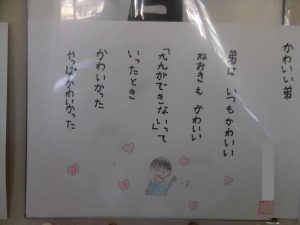 かわいい弟
弟は いつもかわいい
ねおきも かわいい
「九九ができない」って
いったとき
かわいかった
やっぱかわいかった